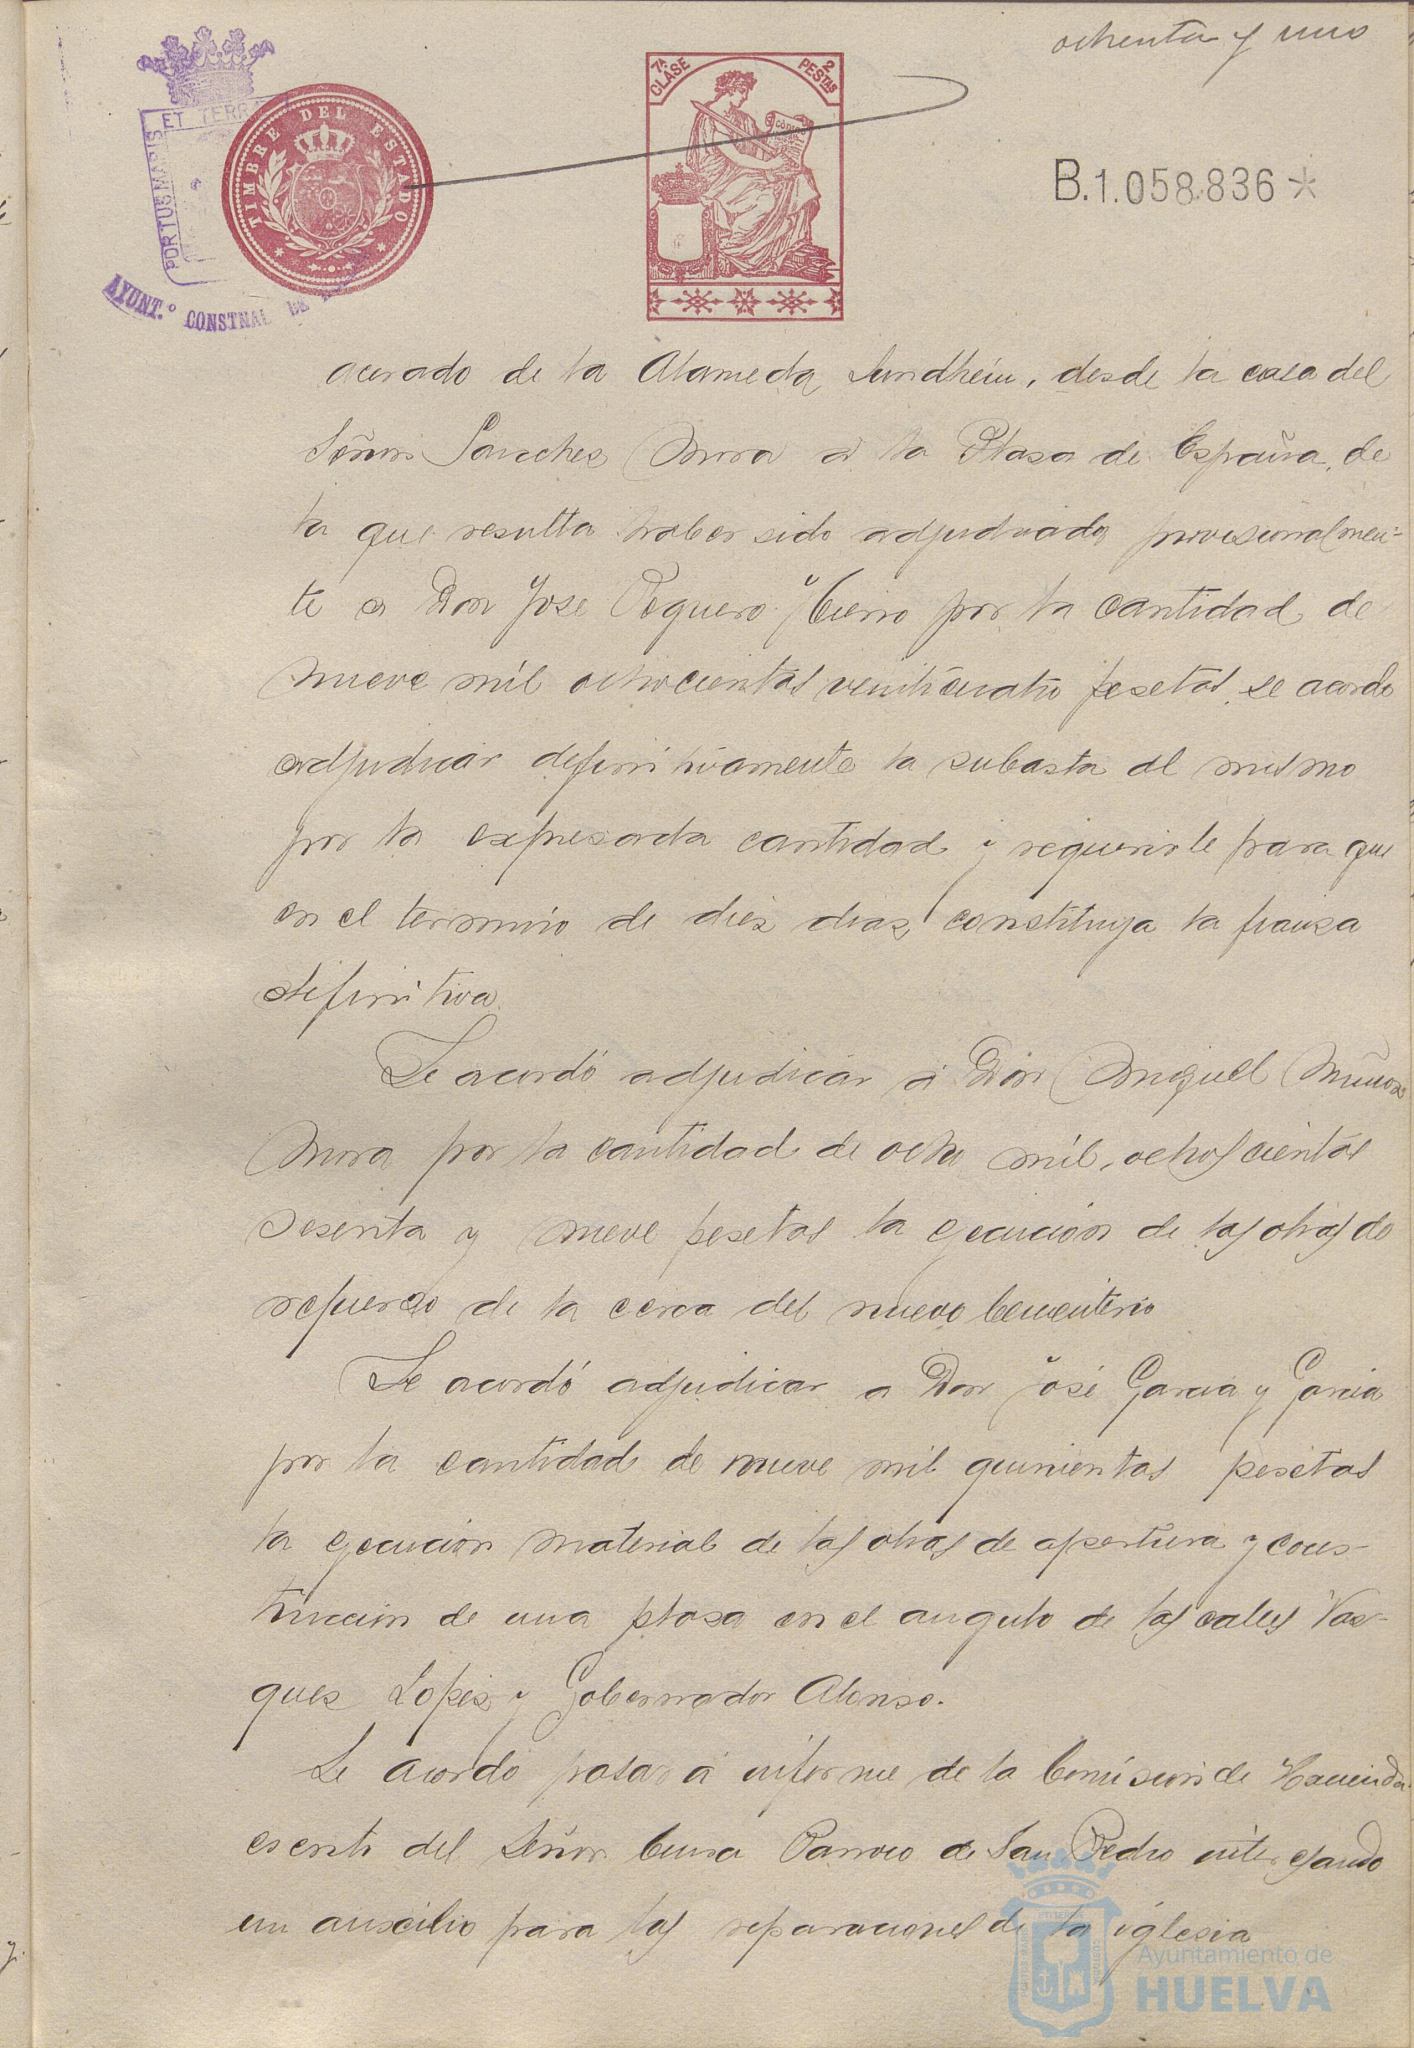 ochenta y uno
7ª CLASE
2 PESTAS
ET TERRÆ
PORTUS MARIS
TIMBRE DEL ESTADO
AYUNT.º CONSTNAL DE
B.1.058.836*
acerado de la Alameda Sundhein, desde la casa del
Señor Sanchez Mora á la Plasa de España, de
la que resulta haber sido adjudicada provisionalmen-
te a Don Jose Peguero y Cierro por la cantidad de
nueve mil ochocientas veinticuatro pesetas, se acordo
adjudicar definitivamente la subasta al mismo
por la expresada cantidad y requerirle para que
en el termino de diez dias, constituya la fianza
definitiva.
Se acordó adjudicar á Don Miguel Muñoz
Mora por la cantidad de ocho mil, ochoscientas
sesenta y nueve pesetas la ejecucion de las obras de
refuerzo de la cerca del nuevo Cementerio
Se acordó adjudicar a Don José Garcia y Garcia
por la cantidad de nueve mil quinientas pesetas
la ejecucion material de las obras de apertura y cons-
truccion de una plasa en el angulo de las calles Vas-
ques Lopez y Gobernador Alonso.
Se acordó pasar á informe de la Comision de Hacienda
escrito del Señor Cura Parroco de San Pedro interesando
un auxcilio para las reparaciones de la iglesia
Ayuntamiento de
HUELVA